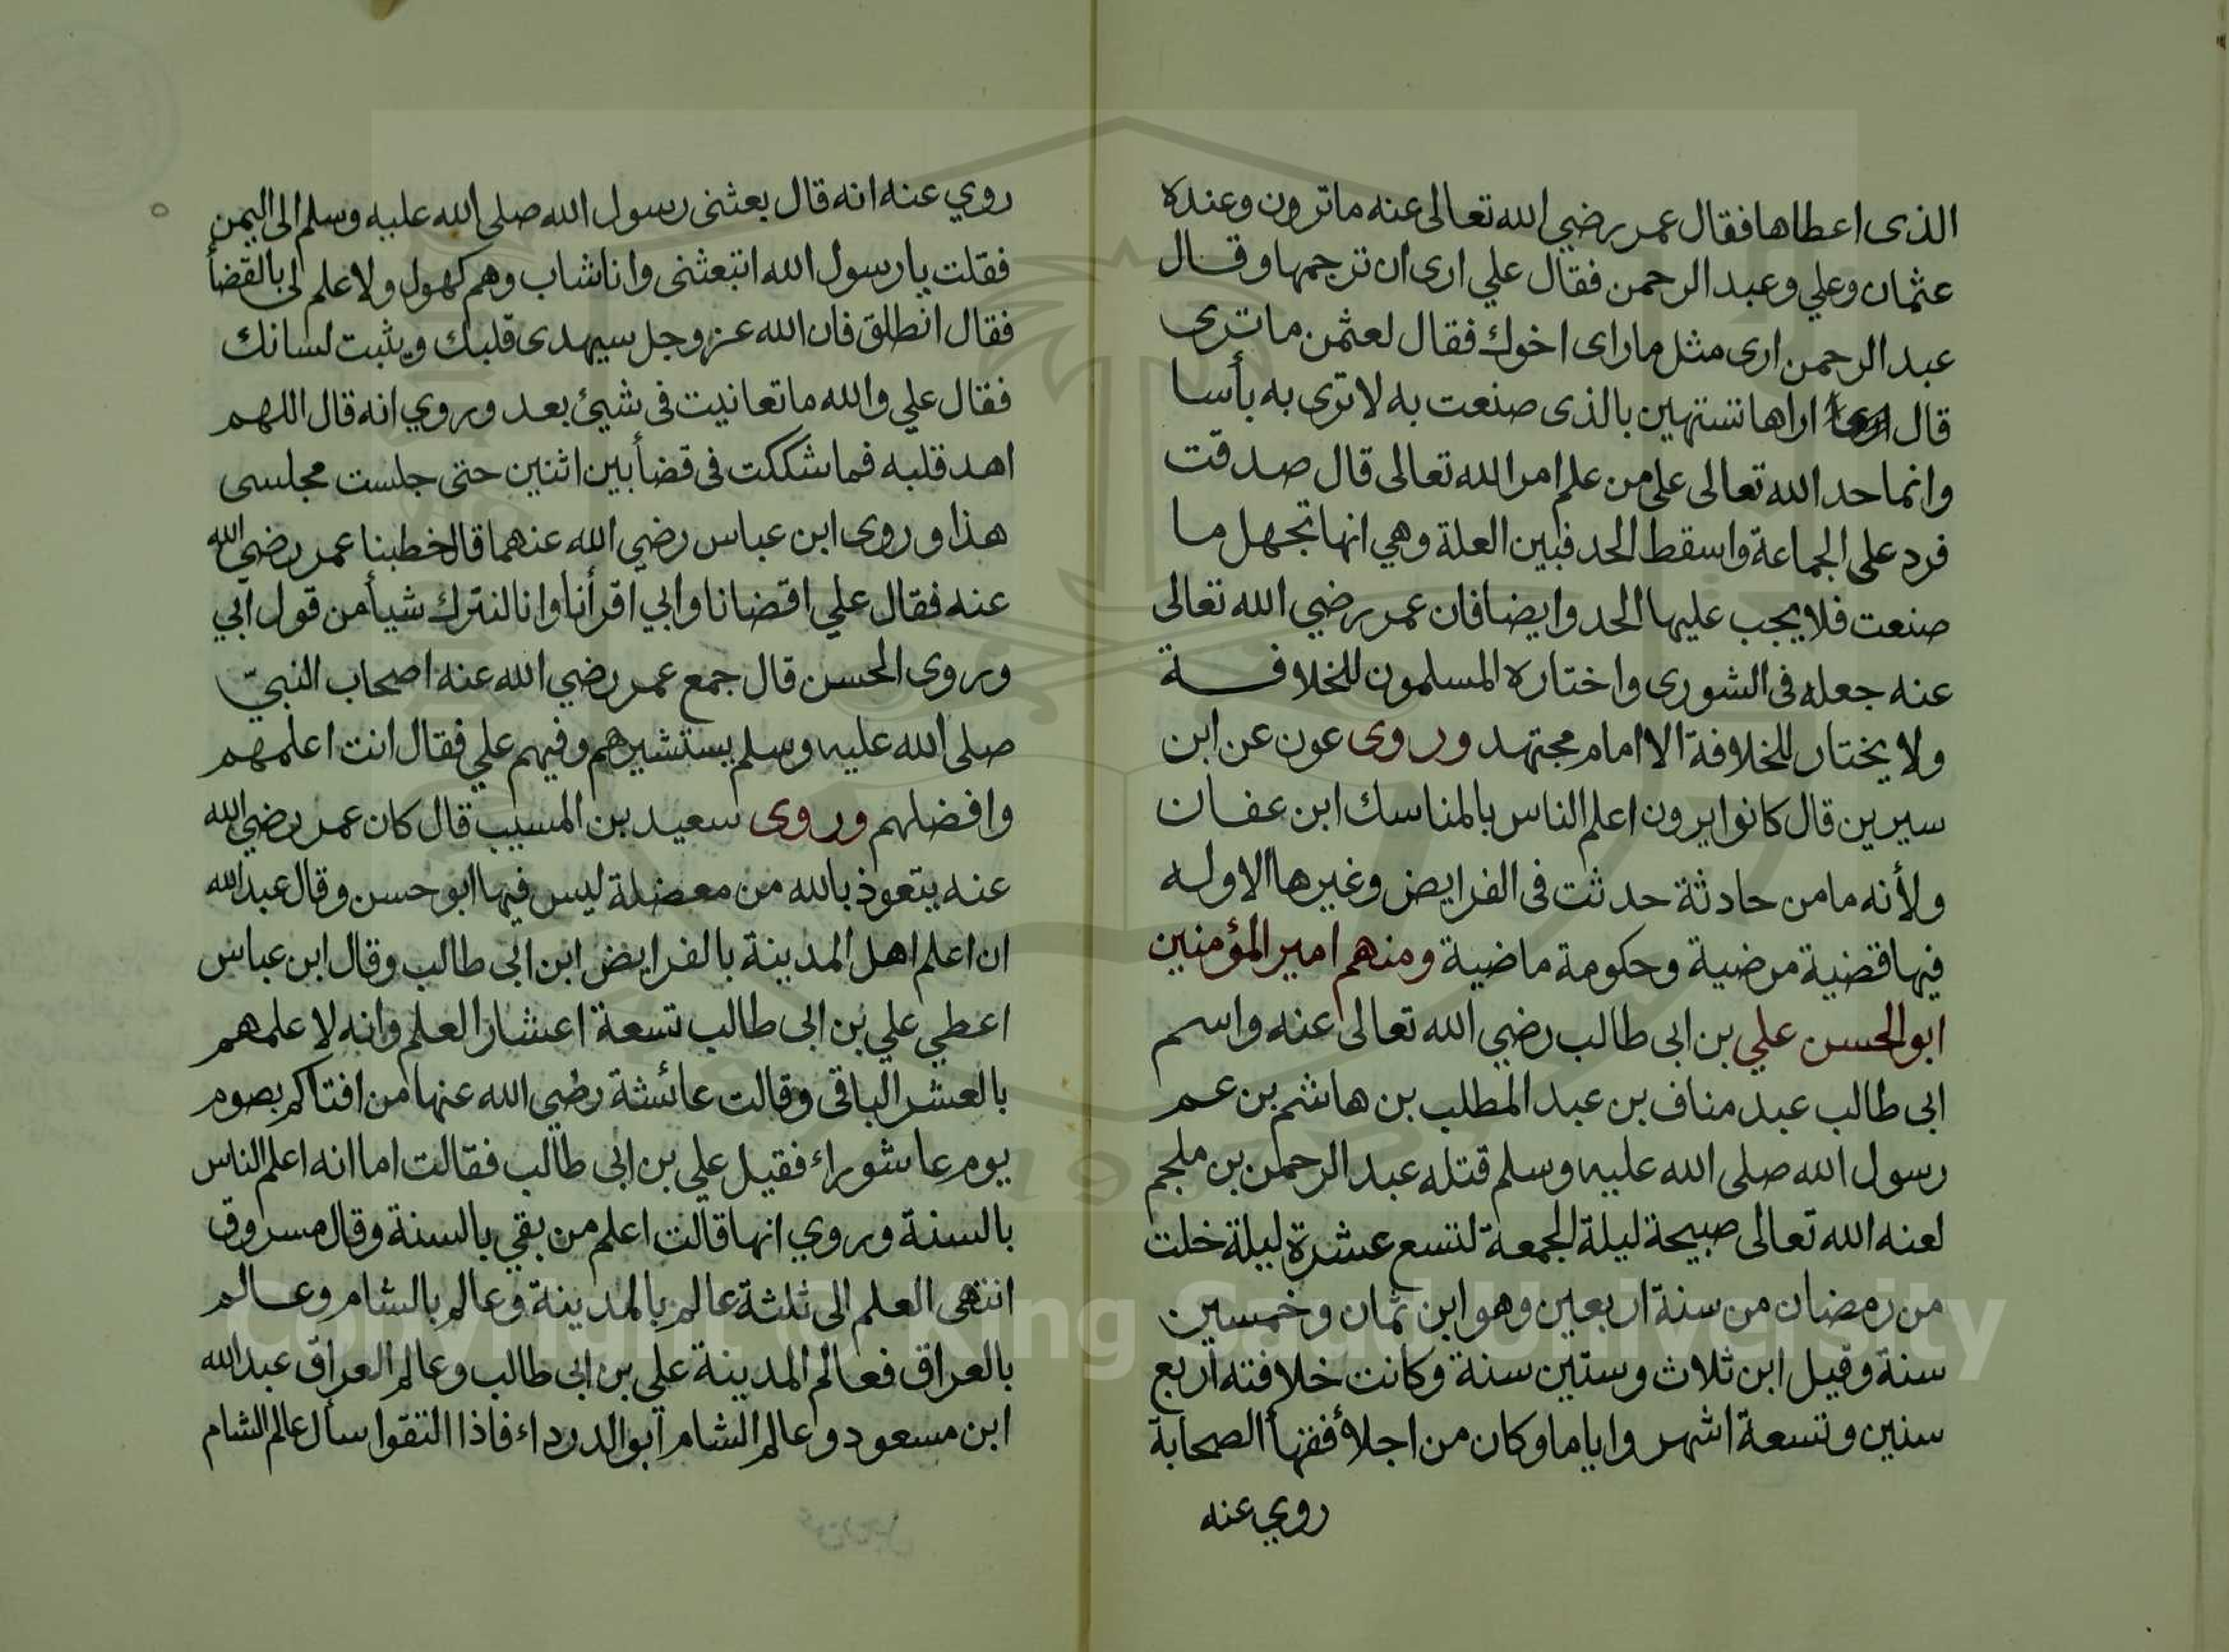 الذى اعطاها فقال عمر رضي الله تعالى عنه ماترون وعنده
عثمان وعلي وعبد الرحمن فقال علي ارى ان ترجمها وقال
عبد الرحمن ارى مثل ماراى اخوك فقال لعثمن ماترى
قال اراها تستهين بالذى صنعت به لا ترى به بأسا
وانما حد الله تعالى على من علم امر الله تعالى قال صدقت
فرد على الجماعة واسقط الحد فبين العلة وهي انها تجهل ما
صنعت فلا يجب عليها الحد وايضا فان عمر رضي الله تعالى
عنه جعله فى الشورى واختاره المسلمون للخلافة
ولا يختار للخلافة الا امام مجتهد وروى عون عن ابن
سيرين قال كانوا يرون اعلم الناس بالمناسك ابن عفان
ولأنه مامن حادثة حدثت فى الفرايض وغيرها الا وله
فيها قضية مرضية وحكومة ماضية ومنهم امير المؤمنين
ابو الحسن علي بن ابى طالب رضي الله تعالى عنه واسم
ابى طالب عبد مناف بن عبد المطلب بن هاشم بن عم
رسول الله صلى الله عليه وسلم قتله عبد الرحمن بن ملجم
لعنه الله تعالى صبيحة ليلة الجمعة لتسع عشرة ليلة خلت
من رمضان من سنة اربعين وهو ابن ثمان وخمسين
سنة وقيل ابن ثلاث وستين سنة وكانت خلافته اربع
سنين وتسعة اشهر واياما وكان من اجلأ فقهأ الصحابة
روي عنه
روي عنه انه قال بعثنى رسول الله صلى الله عليه وسلم الى اليمن
فقلت يا رسول الله اتبعثنى وانا شاب وهم كهول ولا علم لى بالقضأ
فقال انطلق فان الله عز وجل سيهدى قلبك ويثبت لسانك
فقال علي والله ما تعانيت فى شيئ بعد وروي انه قال اللهم
اهد قلبه فما شككت فى قضأ بين اثنين حتى جلست مجلسى
هذا وروى ابن عباس رضي الله عنهما قال خطبنا عمر رضي الله
عنه فقال علي اقضانا وابي اقرأنا وانا لنترك شيأ من قول ابي
وروى الحسن قال جمع عمر رضي الله عنه اصحاب النبيّ
صلى الله عليه وسلم يستشيرهم وفيهم علي فقال انت اعلمهم
وافضلهم وروى سعيد بن المسيب قال كان عمر رضي الله
عنه يتعوذ بالله من معضلة ليس فيها ابو حسن وقال عبد الله
ان اعلم اهل المدينة بالفرايض ابن ابى طالب وقال ابن عباس
اعطي علي بن ابى طالب تسعة اعشار العلم وانه لاعلمهم
بالعشر الباقى وقالت عائشة رضي الله عنها من افتاكم بصوم
يوم عاشوراء فقيل علي بن ابى طالب فقالت اما انه اعلم الناس
بالسنة وروي انها قالت اعلم من بقي بالسنة وقال مسروق
انتهى العلم الى ثلثة عالم بالمدينة وعالم بالشام وعالم
بالعراق فعالم المدينة علي بن ابى طالب وعالم العراق عبد الله
ابن مسعود وعالم الشام ابو الدرداء فاذا التقوا سأل عالم الشام
Copyright © King Saud University